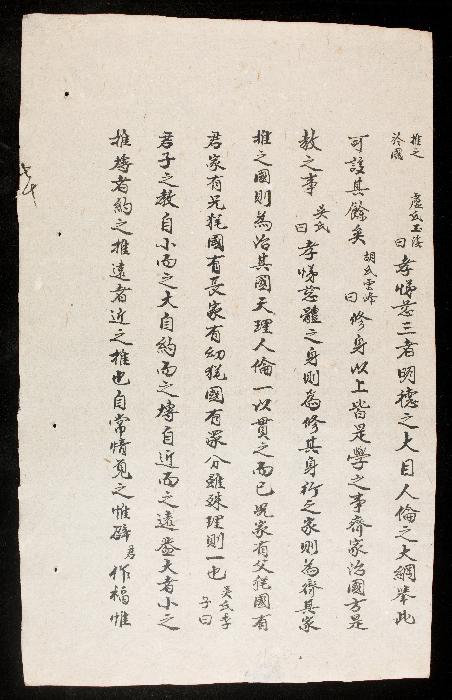 推之於國 盧氏玉溪曰孝悌慈三者明德之大目人倫之大綱舉此
可該其餘矣 胡氏雲峰曰修身以上皆是學之事齊家治國方是
教之事 吳氏曰孝悌慈體之身則為修其身行之家則為齊其家
推之國則為治其國天理人倫一以貫之而已况家有父犹國有
君家有兄犹國有長家有幼犹國有眾分雖殊理則一也 吳氏季子曰
君子之教自小而之大自約而之博自近而之遠盖大者小之
推博者約之推遠者近之推也自常情覔之惟辟君作福惟